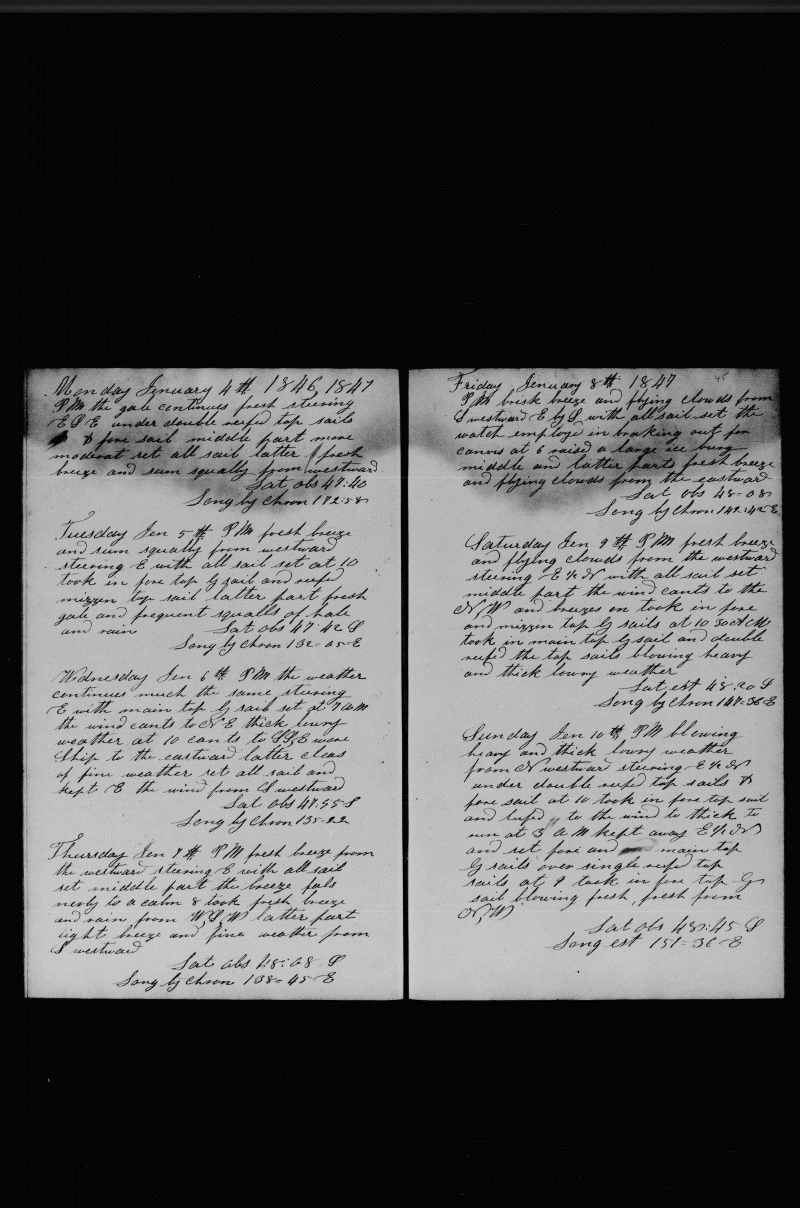 Monday Jenuary 4th 1846, 1847
P M the gale continues fresh steering
E S E under double reefd top sails
& fore sail middle part more
moderat set all sail latter fresh
breeze and sum squally from westward
Lat obs 47:40
Long by chron 172:58
Tuesday Jen 5th P M fresh breeze
and sum squally from westward
steering E with all sail set at 10
took in fore top G sail and reefd
mizzen top sail latter part fresh
gale and frequent squalls of hale
and rain Lat obs 47:42 S
Long by chron 132-05-E
Wednesday Jen 6th P M the weather
continues much the same steering
E with main top G sail set at 7 a m
the wind cants to N E thick lowry
weather at 10 cants to S S E wore
Ship to the eastward latter cleas
of fine weather set all sail and
kept E the wind from S westward
Lat obs 47:55 S
Long by chron 135-22
Thursday Jen 7th P M fresh breeze from
the westward steering E with all sail
set middle part the breeze fals
nerly to a calm & took fresh breeze
and rain from W S W latter part
light breeze and fine weather from
S westward
Lat obs 48:08 S
Long by chron 138=45 E
Friday Jenuary 8th 1847
P M brisk breeze and flying clowds from
S westward E by S with all sail set the
watch employe in braking out for
canvis at 6 raised a large ice burg
middle and latter parts fresh breeze
and flying clowds from the eastward
Lat obs 48-08
Long by chron 142:42 E
Saturday Jen 9th P M fresh breeze
and flying clowds from the westward
steering E ½ N with all sail set
middle part the wind cants to the
N, W and breezes on took in fore
and mizzen top G sails at 10 30 A M
took in main top G sail and double
reefd the top sails blowing heavy
and thick lowry weather
Lat est 48.20 S
Long by chron 147=36 E
Sunday Jen 10th P M blowing
heavy and thick lowry weather
from N westward steering E ½ N
under double reefd top sails &
fore sail at 10 took in fore top sail
and lufd to the wind to thick to
run at 3 A M kept away E ½ N
and set fore and main top
G sails over single reefd top
sails at 9 took in fore top G
sail blowing fresh, fresh from
N, W
Lat obs 48:45 S
Long est 151=36-E